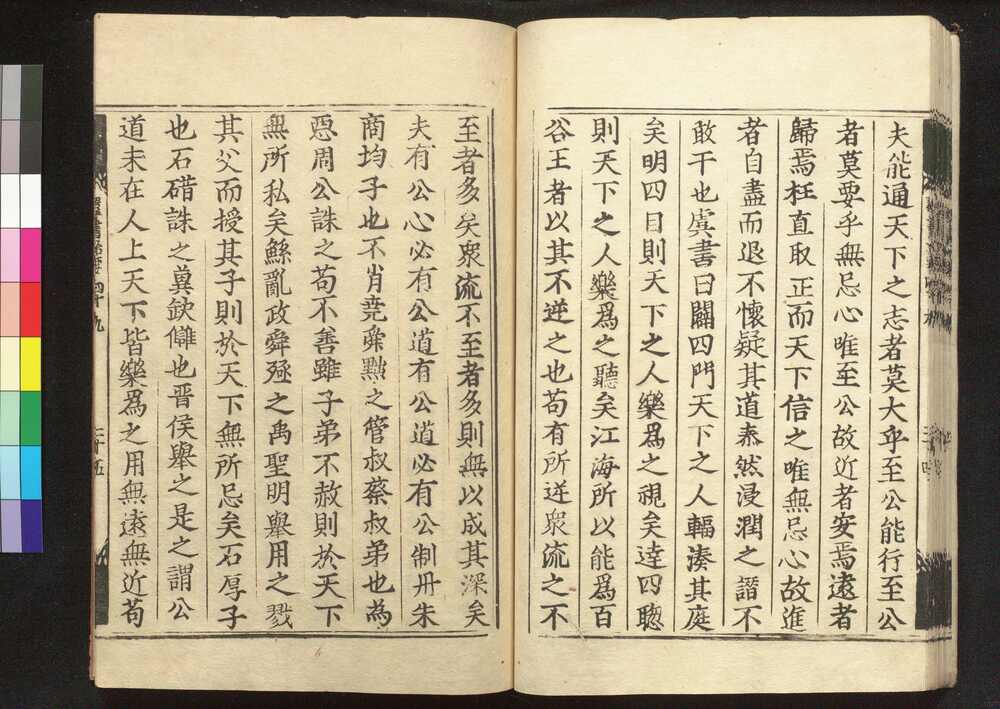 夫能通天下之志者莫大乎至公能行至公
者莫要乎無忌心唯至公故近者安焉遠者
歸焉枉直取正而天下信之唯無忌心故進
者自盡而退不懷疑其道泰然浸潤之譖不
敢干也虞書曰闢四門天下之人輻湊其庭
矣明四目則天下之人樂爲之視矣達四聰
則天下之人樂爲之聽矣江海所以能爲百
谷王者以其不逆之也苟有所逆衆流之不
至者多矣衆流不至者多則無以成其深矣
夫有公心必有公道有公道必有公制丹朱
商均子也不肖堯舜黜之管叔蔡叔弟也為
惡周公誅之苟不善雖子弟不赦則於天下
無所私矣鯀亂政舜殛之禹聖明舉用之戮
其父而授其子則於天下無所忌矣石厚子
也石碏誅之冀缺讎也晋侯舉之是之謂公
道未在人上天下皆樂爲之用無遠無近苟
羣書治要四十九
二十五